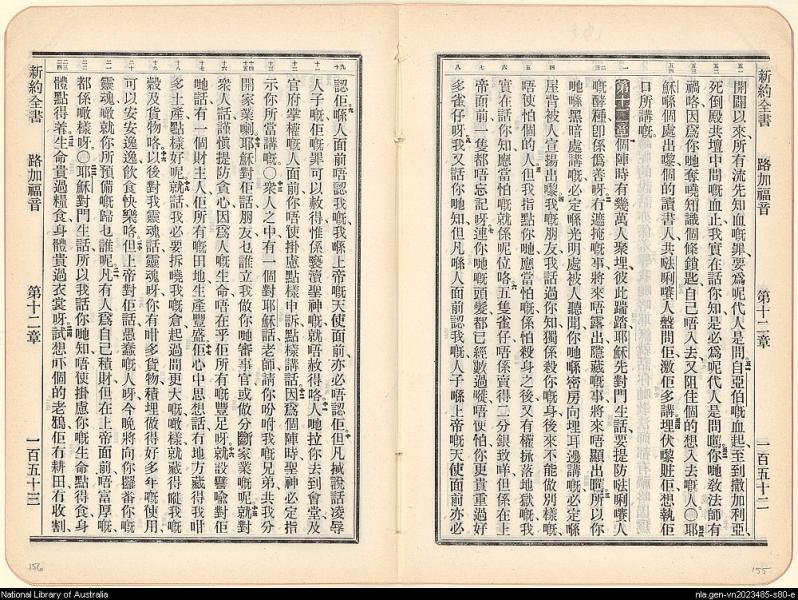 新約全書　路加福音　第十二章　一百五十二
開闢以來所有流先知血嘅罪要爲呢代人是問自亞伯嘅血起至到撒加利亞、
死倒殿共壇中間嘅血止我實在話你知是必爲呢代人是問囉你哋敎法師有
禍咯因爲你哋奪曉知識個條鎖匙自己唔入去又阻住個的想入去嘅人〇耶
穌喺個處出嚟個的讀書人共𠵽唎㘔人盤問佢激佢多講埋伏嚟賍佢想執佢
口所講嘅
第十二章個陣時有幾萬人聚埋彼此踹踏耶穌先對門生話要提防𠵽唎㘔人
嘅酵種卽係僞善呀有遮掩嘅事將來唔露出隱藏嘅事將來唔顯出啊所以你
哋喺黑暗處講嘅必定喺光明處被人聽聞你哋喺密房向埋耳邊講嘅必定喺
屋背被人宣揚出嚟我嘅朋友我話過你知獨係殺你嘅身後來不能做別樣嘅
唔使怕個人但我指點你哋應當怕嘅係怕殺身之後又有權𢱕落地獄嘅我
實在話你知應當怕嘅就係呢位咯五隻雀仔唔係賣得二分銀咋但係在上
帝面前一隻都唔忘記呀連你哋嘅頭髮都已經數過嘥唔使怕你更貴重過好
多雀仔呀我又話你哋知但凡喺人面前認我嘅人子喺上帝嘅天使面前亦必
認佢喺人面前唔認我嘅我喺上帝嘅天使面前亦必唔認佢但凡𢫏說話凌辱
人子嘅佢嘅罪可以赦得惟係褻瀆聖神嘅就唔赦得咯人哋拉你去到會堂及
官府掌權嘅人面前你唔使掛慮點樣申訴點樣講話因爲個陣時聖神必定指
示你所當講嘅〇衆人之中有一個對耶穌話老師請你吩咐我嘅兄弟共我分
開家業喇耶穌對佢話朋友乜誰立我做你哋審事官或做分斷家業嘅呢就對
衆人話謹愼提防貪心因爲人嘅生命唔在乎佢所有嘅豐足呀就設譬喻對佢
哋話有一個財主人佢所有嘅田地生產豐盛佢心中思想話冇地方藏得我咁
多土產點樣好呢就話我必要拆曉我嘅倉起過間更大嘅噉樣就藏得嘥我嘅
穀及貨物咯以後對我靈魂話靈魂呀你有咁多貨物積埋做得好多年嘅使用、
可以安安逸逸飲食快樂咯但上帝對佢話愚蠢嘅人呀今晚將向你攞番你嘅
靈魂噉就你所預備嘅歸乜誰呢凡有人爲自己積財但在上帝面前唔富厚嘅、
都係噉樣呀〇耶穌對門生話所以我話你哋知唔使掛慮你嘅生命點得食身
體點得着生命貴過糧食身體貴過衣裳呀試想吓個的老鴉佢冇耕田冇收割
新約全書　路加福音　第十二章　一百五十三
156
155
National Library of Australia
nla.gen-vn2023485-s80-e